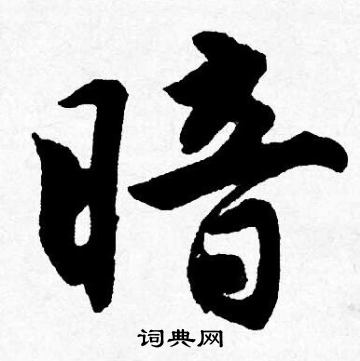 暗
词典网